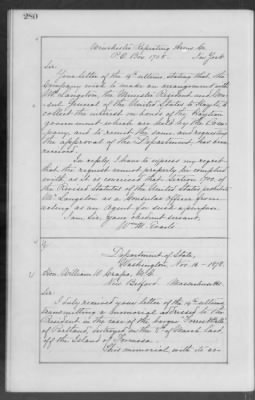 280
Winchester Repeating Arms Co.
P.O. Box 1708. New York.
Sir
Your letter of the 4th ultimo, stating that the
Company wish to make an arrangement with
Mr. Langston, the Minister Resident and Con-
sul General of the United States to Hayti, to
collect the interest on bonds of the Haytian
government which are held by the Com-
pany, and to remit the same, and requesting
the approval of the Department, has been
received.
In reply, I have to express my regret
that the request cannot properly be complied
with as it is conceived that Section 1700 of
the Revised Statutes of the United States prohibits
Mr. Langston as a Consular officer from
acting as an Agent for such a purpose.
I am, Sir, your obedient servant,
Wm. M. Evarts
Department of State,
Washington, Nov. 14 - 1878.
Hon. William W. Crapo, M.C.
New Bedford Massachusetts
Sir
I duly received your letter of the 14th ultimo
transmitting a memorial addressed to the
President in the case of the barque
of Portland, destroyed on the of March last
off the Island of Formosa.
This memorial with its ac-